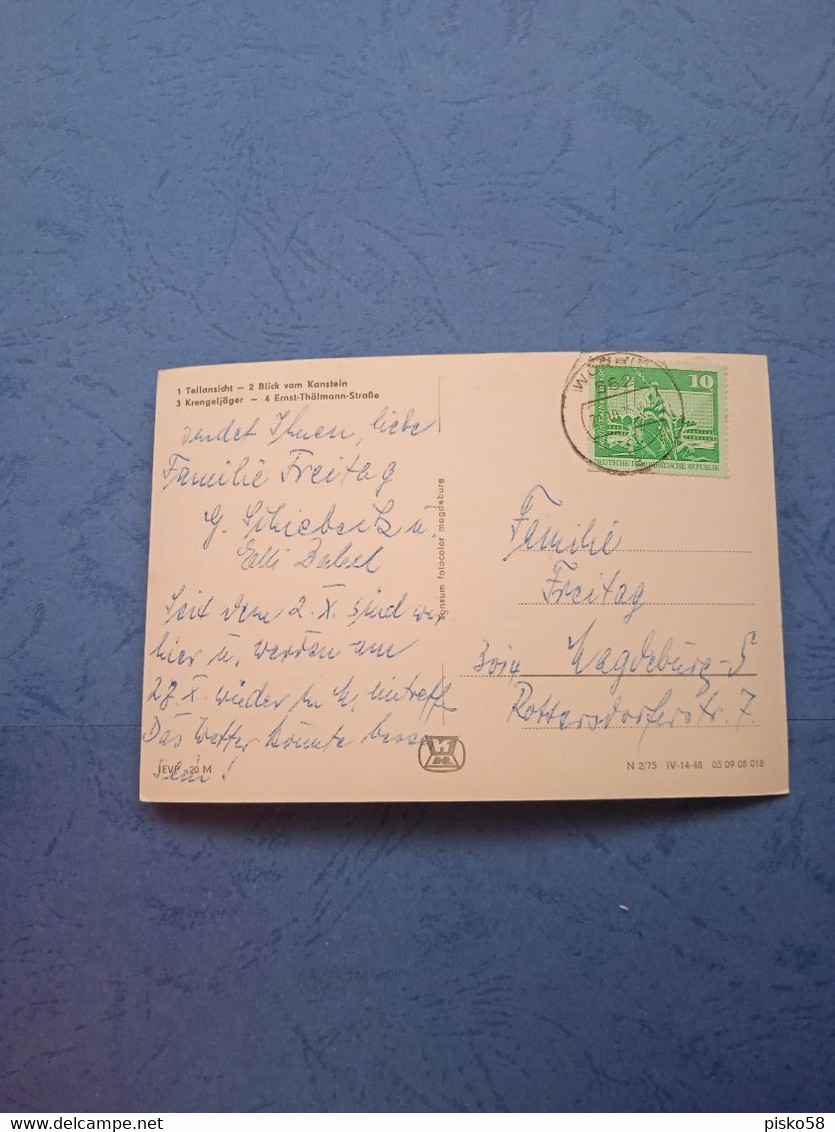 1 Teilansicht – 2 Blick vom Kanstein
3 Krengeljäger – 4 Ernst-Thälmann-Straße
sendet Ihnen, liebe
Familie Freitag
G. u.
Elli
Seit dem 2. X. sind wir
hier u. werden am
27. X. wieder in M. eintreffe
Das Wetter könnte besser
sein!
EVP -,20 M
konsum fotocolor magdeburg
10
DEUTSCHE DEMOKRATISCHE REPUBLIK
Familie
Freitag
301x Magdeburg-5
Rottersdorferstr. 7.
N 2/75 IV-14-48 05 09 08 018
www.delcampe.net
pisko58